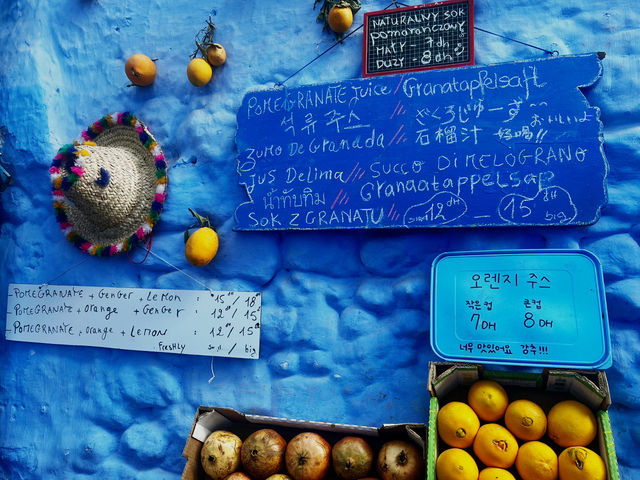 NATURALNY SOK
pomarańczowy
MAŁY 7dh
DUŻY - 8dh
POMEGRANATE juice / Granatapfelsaft
석류 주스 // ざくろじゅーす おいしいよ
ZUMO DE Granada // 石榴汁 好喝!!
JUS Delima // SUCCO DI MELOGRANO
น้ำทับทิม // Granaatappelsap
SOK Z GRANATU // small 12dh - 15dh big
- POMEGRANATE + GENGER + LEMON : 15 / 18
- POMEGRANATE + orange + GENGER : 12 / 15
- POMEGRANATE, orange + LEMON : 12 / 15
FRESHLY / big
오렌지 주스
작은컵 큰컵
7DH 8DH
너무 맛있어요 강추!!!